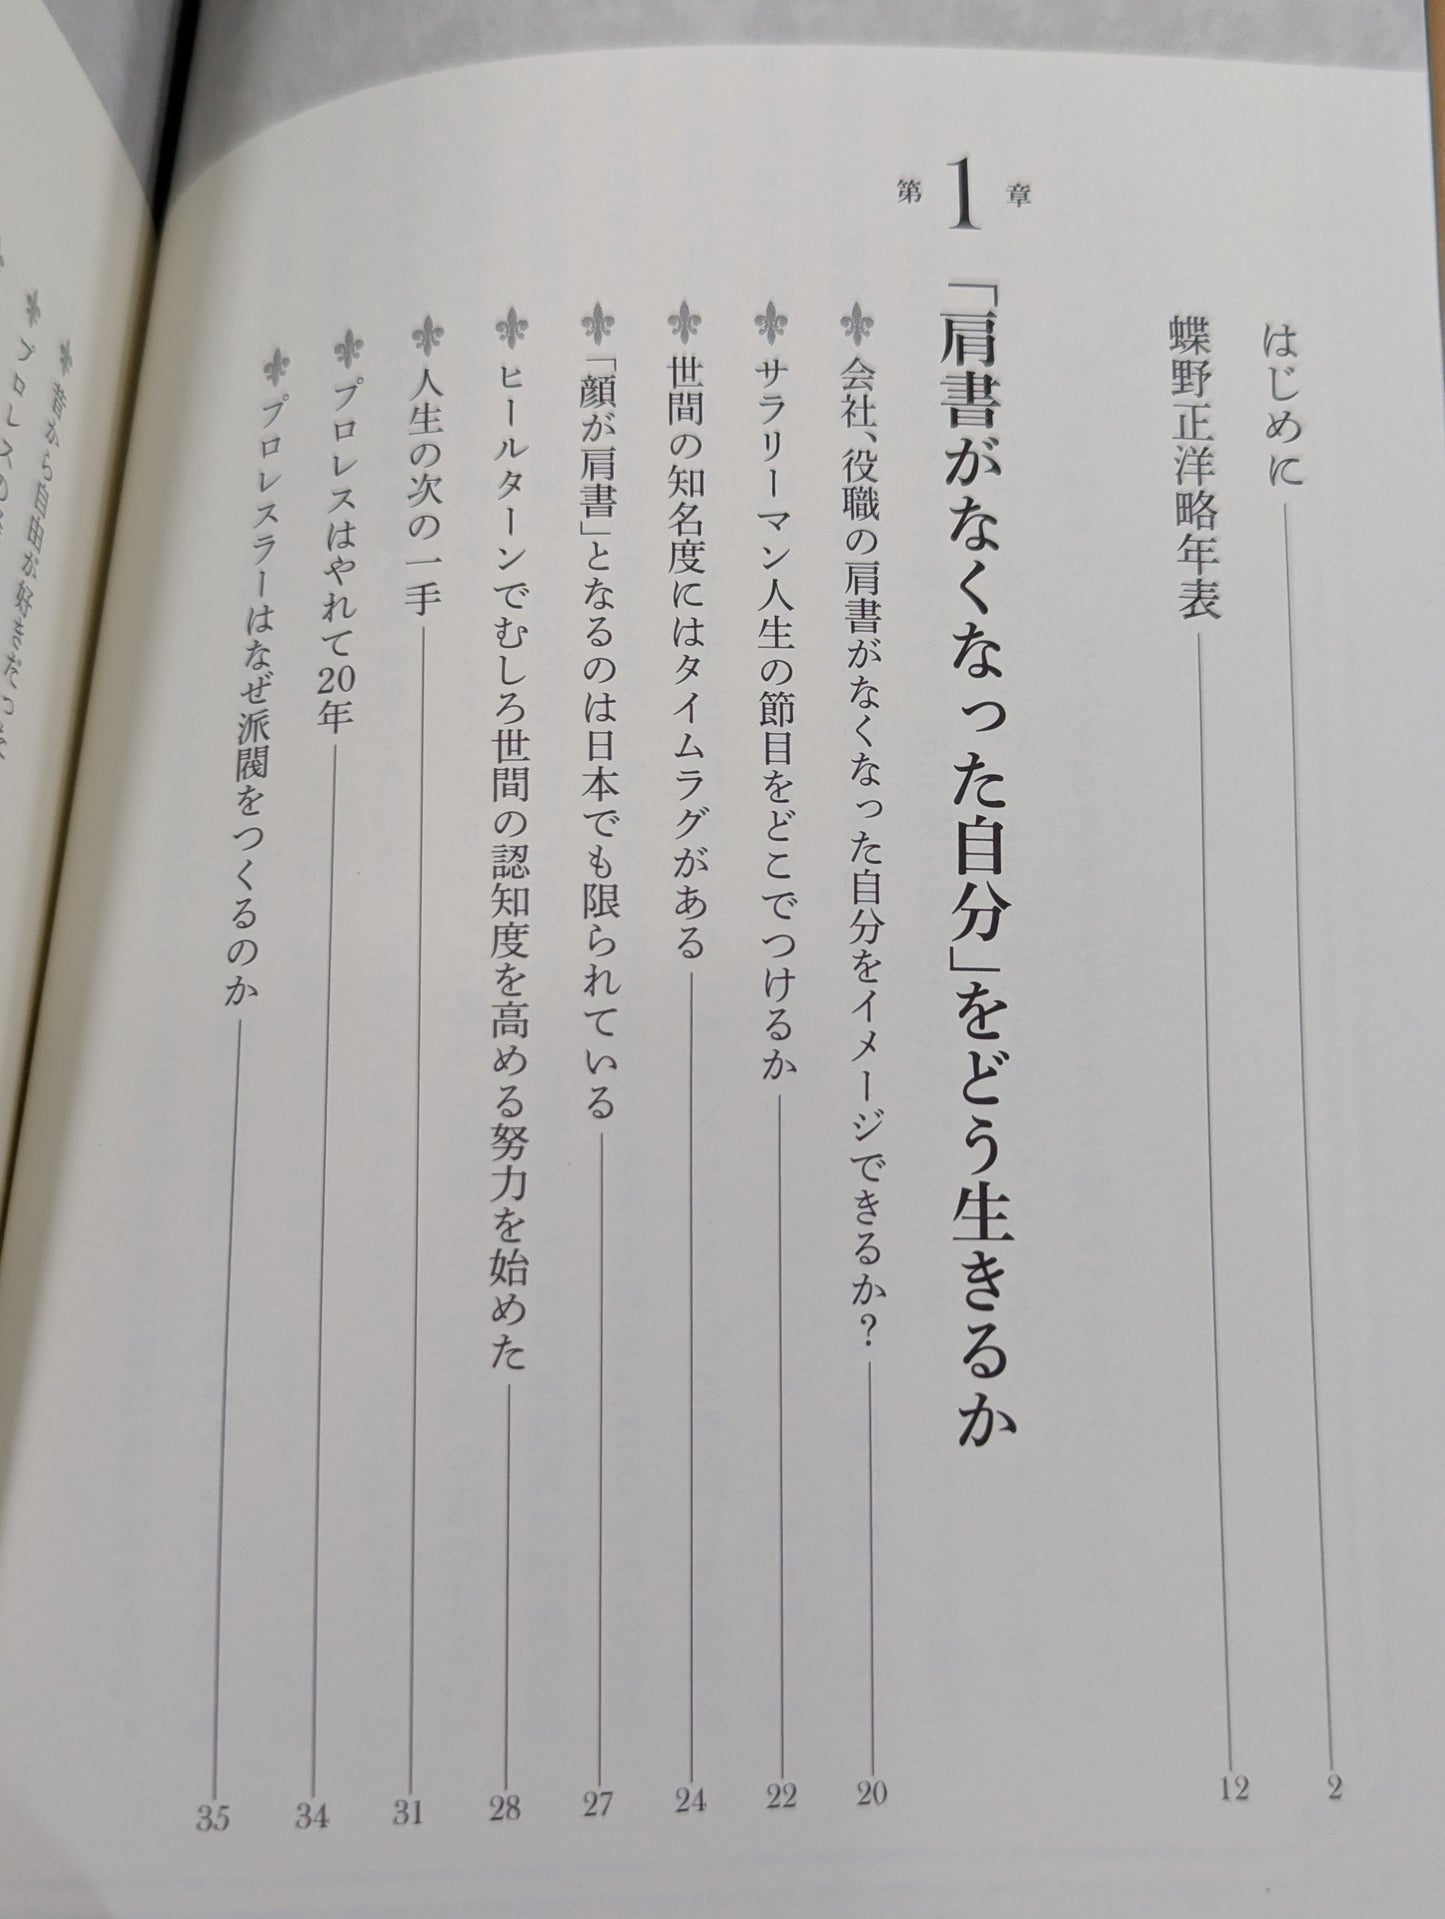 はじめに 2
蝶野正洋略年表 12
第1章 「肩書がなくなった自分」をどう生きるか
会社、役職の肩書がなくなった自分をイメージできるか？ 20
サラリーマン人生の節目をどこでつけるか 22
世間の知名度にはタイムラグがある 24
「顔が肩書」となるのは日本でも限られている 27
ヒールターンでむしろ世間の認知度を高める努力を始めた 28
人生の次の一手 31
プロレスはやれて20年 34
プロレスラーはなぜ派閥をつくるのか 35
昔から自由が好きだった
プロレスの